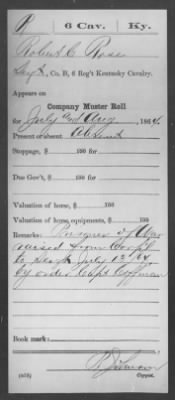 R | 6 Cav. | Ky.
Robert C. Rose
Serg't, Co. B, 6 Reg't Kentucky Cavalry.
Appears on
Company Muster Roll
for July and Aug, 1864.
Present or absent Absent
Stoppage, $ 100 for
Due Gov't, $ 100 for
Valuation of horse, $ 100
Valuation of horse equipments, $ 100
Remarks: Prisoner of War
raised from Corpl
to Serg't July 1st/64
by order Capt Coffman
Book mark:
Copyist.